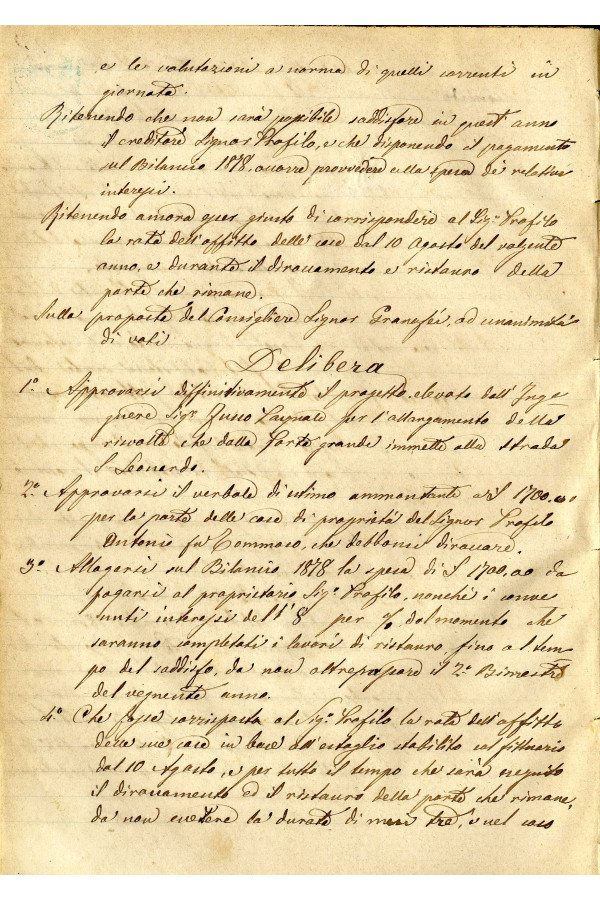 e le valutazioni a norma di quelli correnti in
giornata.
Ritenendo che non sarà possibile soddisfare in quest'anno
il creditore Signor Profilo, e che disponendo il pagamento
sul Bilancio 1878, occorre provvedere alla spesa de' relativi
interessi.
Ritenendo ancora esser giusto di corrispondere al Sig.r Profilo
la rata dell'affitto delle case dal 10 Agosto del volgente
anno, e durante il diroccamento e ristauro della
parte che rimane.
Sulla proposta del Consigliere Signor Granafei, ad unanimità
di voti
Delibera
1.° Approvarsi diffinitivamente il progetto elevato dall'Inge
gnere Sig.r per l'allargamento della
risvolta che dalla Porta grande immette alla strada
S. Leonardo.
2.° Approvarsi il verbale di estimo ammontante a £ 1700,00
per la parte delle case di proprietà del Signor Profilo
Antonio fu Tommaso, che debbonsi diroccare.
3.° Allogarsi sul Bilancio 1878 la spesa di £ 1700,00 da
pagarsi al proprietario Sig.r Profilo, nonché i conve
nuti interessi dell'8 per % dal momento che
saranno completati i lavori di ristauro, fino al tem
po del soddisfo, da non oltrepassare il 2.° Bimestre
del vegnente anno.
4.° Che fosse corrisposta al Sig.r Profilo la rata dell'affitto
delle sue case in base dell'estaglio stabilito col fittuario
dal 10 Agosto, e per tutto il tempo che sarà eseguito
il diroccamento ed il ristauro della parte che rimane,
da non eccedere la durata di mesi tre, e nel caso